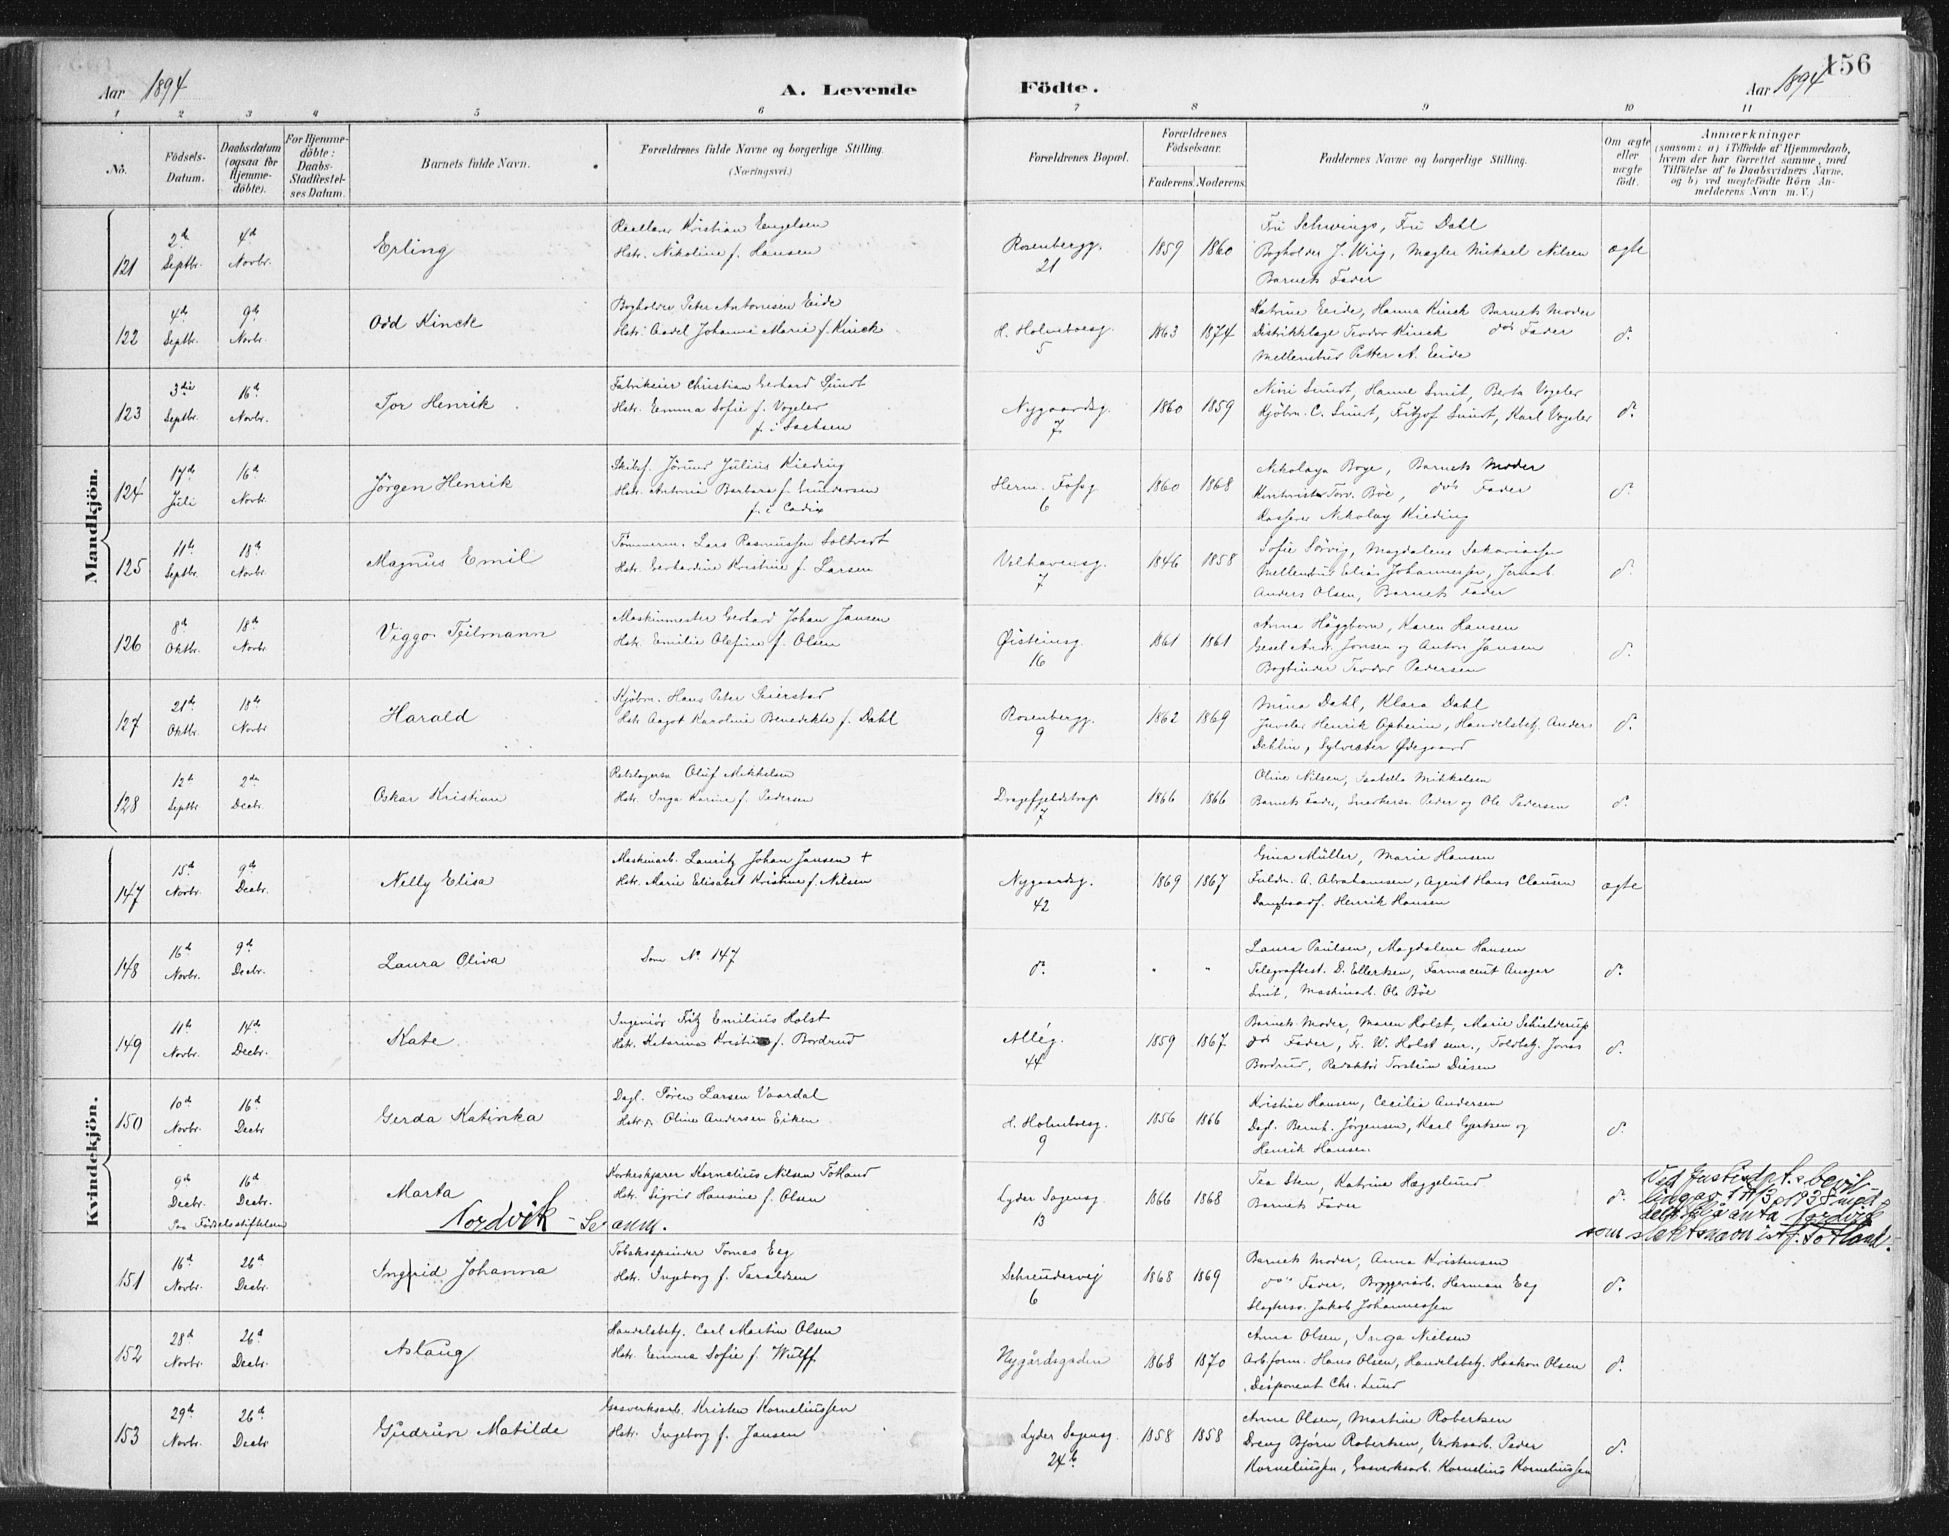 156
Aar 1894 A. Levende Födte. Aar 1894
1 2 3 4 5 6 7 8 9 10 11
No. Födsels-Datum. Daabsdatum (ogsaa för Hjemme-döbte). For Hjemme-döbte: Daabs-Stadfæstel-ses Datum. Barnets fulde Navn. Forældrenes fulde Navne og borgerlige Stilling. (Næringsvei.) Forældrenes Bopæl. Forældrenes Födselsaar. Faderens. Moderens. Faddernes Navne og borgerlige Stilling. Om ægte eller uægte födt. Anmærkninger (saasom: a) i Tilfælde af Hjemmedaab, hvem der har forrettet samme, med Tilföielse af to Daabsvidners Navne, og b) ved uægtefödte Börn An-melderens Navn m. V.)
Mandkjön.
121 2de Septbr. 4d Novbr. Erling
Kristian Engelsen
Hstr. Nikoline f. Hansen
Rosenbergg. 21 1859 1860
Fru Schwings, Fru Dahl
Bogholder J. Wiig, Mægler Mikael Nilsen
Barnets Fader
ægte
122 4d Septbr. 9d Novbr. Odd Kinck
Bogholder Peter Antonisen Eide
Hstr. Aadel Johanne Marie f. Kinck
H. Holmboesg. 5 1863 1874
Katrine Eide, Hanna Kinck Barnets Moder
Distriktslæge Teodor Kinck do's Fader
Petter A. Eide
do.
123 3die Septbr. 16d Novbr. Tor Henrik
Fabrikeier Christian Gerhard Sundt
Hstr. Emma Sofie f. Vogeler
f. i Sachsen
Nygaardsg. 7 1860 1859
Nini Sundt, Hanne Smit, Berta Vogeler
Kjöbm. C. Sundt, Fritjof Sundt, Karl Vogeler
do.
124 17d Juli 16d Novbr. Jörgen Henrik
Skibsf. Julius Kieding
Hstr. Antonie Barbara f. Gundersen
f. i Cadix
Herm. Fossg. 6 1860 1868
Nikolaya Boge, Barnets Moder
Torv. Böe, do's Fader
Nikolay Kieding
do.
125 11te Septbr. 18d Novbr. Magnus Emil
Tömmerm. Lars Rasmussen Soltvedt
Hstr. Gerhardine Kristine f. Larsen
Velhavensg. 7 1846 1858
Sofie Sörvig, Magdalene Sakariassen
Elias Johannessen, Jernarb.
Anders Olsen, Barnets Fader
do.
126 8d Oktbr. 18d Novbr. Viggo Teilmann
Maskinmester Gerhard Johan Jansen
Hstr. Emilie Olefine f. Olsen
Øisteinsg. 16 1861 1861
Anna Häggbom, Karen Hansen
Gesel Andr. Jonsen og Anton Jansen
Bogbinder Teodor Pedersen
do.
127 21de Oktbr. 18d Novbr. Harald
Kjöbm. Hans Peter Seierstad
Hstr. Aagot Karoline Benedikte f. Dahl
Rosenbergg. 9 1862 1869
Mina Dahl, Klara Dahl
Juveler Henrik Opheim, Handelsbetj. Anders
Dehlin, Sylvester Ødegaard
do.
128 12te Septbr. 2den Decbr. Oskar Kristian
Oluf Mikkelsen
Hstr. Inga Karine f. Pedersen
Dragefjeldstrap. 7 1866 1866
Oline Nilsen, Isabella Mikkelsen
Barnets Fader, Snedkersv. Peder og Ole Pedersen
do.
Kvindekjön.
147 15d Novbr. 9d Decbr. Nelly Elisa
Maskinarb. Lauritz Johan Jansen +
Hstr. Marie Elisabet Kristine f. Nilsen
Nygaardsg. 42 1869 1867
Gina Müller, Marie Hansen
Fuldm. A. Abrahamsen, Agent Hans Clausen
Henrik Hansen
ægte
148 16d Novbr. 9d Decbr. Laura Oliva
Som No. 147
do. " "
Laura Paulsen, Magdalene Hansen
Telegrafbest. D. Ellertsen, Farmaceut Ansgar
Smit, Maskinarb. Ole Böe
do.
149 11te Novbr. 14de Decbr. Kate
Ingeniör Fritz Emilius Holst
Hstr. Katarina Kristine f. Bordrud
Alleg. 44 1859 1867
Barnets Moder, Maren Holst, Marie Schielderup
do's Fader, Fr. W. Holst senr., Toldbetj. Jonas
Bordrud, Redaktör Torstein Diesen
do.
150 10d Novbr. 16d Decbr Gerda Katinka
Dagl. Sören Larsen Vaardal
Hstr. Oline Andersen Eiken
H. Holmboesg. 9 1856 1866
Kristine Hansen, Cecilia Andersen
Dagl. Bernh. Jörgensen, Karl Gjertsen og
Henrik Hansen
do.
9d Decbr. 16d Decbr. Marta
Paa Födselsstiftelsen Nordvik - Se anm.
Korkeskjærer Kornelius Nilsen Totland
Hstr. Sigrid Hansine f. Olsen
Lyder Sagensg. 13 1866 1868
Tea Sten, Katrine Hæggelund
Barnets Fader
do.
Ved Justisdpt.s bevil-
ling av 17/3 1938 med-
delt anta Nordvik
som slektsnavn istf. Totland.
151 16d Novbr. 26d Decbr. Ingrid Johanna
Tobaksspinder Tomas Eeg
Hstr. Ingeborg f. Taraldsen
Schreudervej 6 1868 1869
Barnets Moder, Anna Kristensen
do's Fader, Bryggeriarb. Herman Eeg
Slagtersv. Jakob Johannessen
do.
152 28d Novbr. 26d Decbr. Aslaug
Handelsbetj. Carl Martin Olsen
Hstr. Emma Sofie f. Wulff
Nygårdsgaden 1868 1870
Anna Olsen, Inga Nielsen
Arb.form. Hans Olsen, Handelsbetj. Haakon Olsen
Disponent Chr. Lund
do.
153 29d Novbr. 26d Decbr Gudrun Matilde
Gasverksarb. Kristen Korneliussen
Hstr. Ingeborg f. Jansen
Lyder Sagensg. 24b 1858 1858
Anne Olsen, Martine Robertsen
Dreng Björn Robertsen, Verksarb. Peder
Korneliussen, Gasverksarb. Kornelius Korneliussen
do.